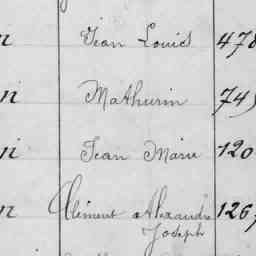 n Jean Louis 478
ni Mathurin 749
ni Jean Marie 120
n Clément Alexandre 126
Joseph